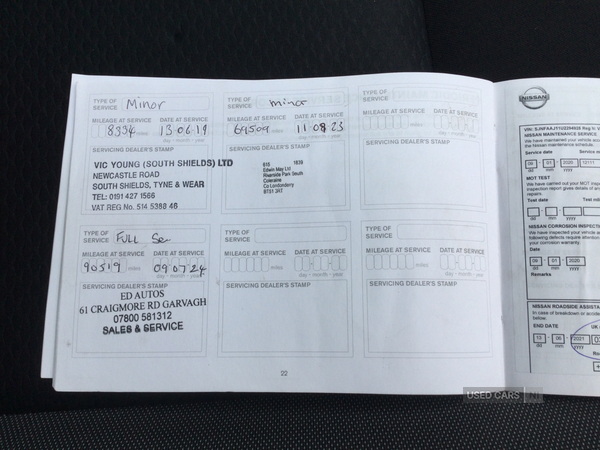 TYPE OF SERVICE Minor
MILEAGE AT SERVICE DATE AT SERVICE
8334 miles 13 06 19
day - month - year
SERVICING DEALER'S STAMP
VIC YOUNG (SOUTH SHIELDS) LTD
NEWCASTLE ROAD
SOUTH SHIELDS, TYNE & WEAR
TEL: 0191 427 1566
VAT REG No. 514 5388 46
TYPE OF SERVICE minor
MILEAGE AT SERVICE DATE AT SERVICE
69509 11 08 23
SERVICING DEALER'S STAMP
615 1839
Edwin May Ltd
Riverside Park South
Coleraine
Co Londonderry
BT51 3AT
TYPE OF SERVICE
MILEAGE AT SERVICE DATE AT SERVICE
miles
day - month - year
SERVICING DEALER'S STAMP
TYPE OF SERVICE FULL Ser
MILEAGE AT SERVICE DATE AT SERVICE
90519 miles 09 07 24
day - month - year
SERVICING DEALER'S STAMP
ED AUTOS
61 CRAIGMORE RD GARVAGH
07800 581312
SALES & SERVICE
TYPE OF SERVICE
MILEAGE AT SERVICE DATE AT SERVICE
miles
day - month - year
SERVICING DEALER'S STAMP
TYPE OF SERVICE
MILEAGE AT SERVICE DATE AT SERVICE
miles
day - month - year
SERVICING DEALER'S STAMP
22
NISSAN
NISSAN MAINTENANCE SERVICE
We have maintained your vehicle
the Nissan maintenance schedule.
Service date
09 01 2026
dd mm YYYY
MOT TEST
We have carried out your MOT
inspection report gives details of
repairs.
Test date Test mil
dd mm YYYY
NISSAN CORROSION INSPECTI
We have inspected your vehicle
following defects require attention
your corrosion warranty.
Date
09 01 2026
dd mm YYYY
Remarks
NISSAN ROADSIDE ASSISTA
In case of breakdown or accide
below.
END DATE UK
13 06 2021
dd mm YYYY
USED CARS NI